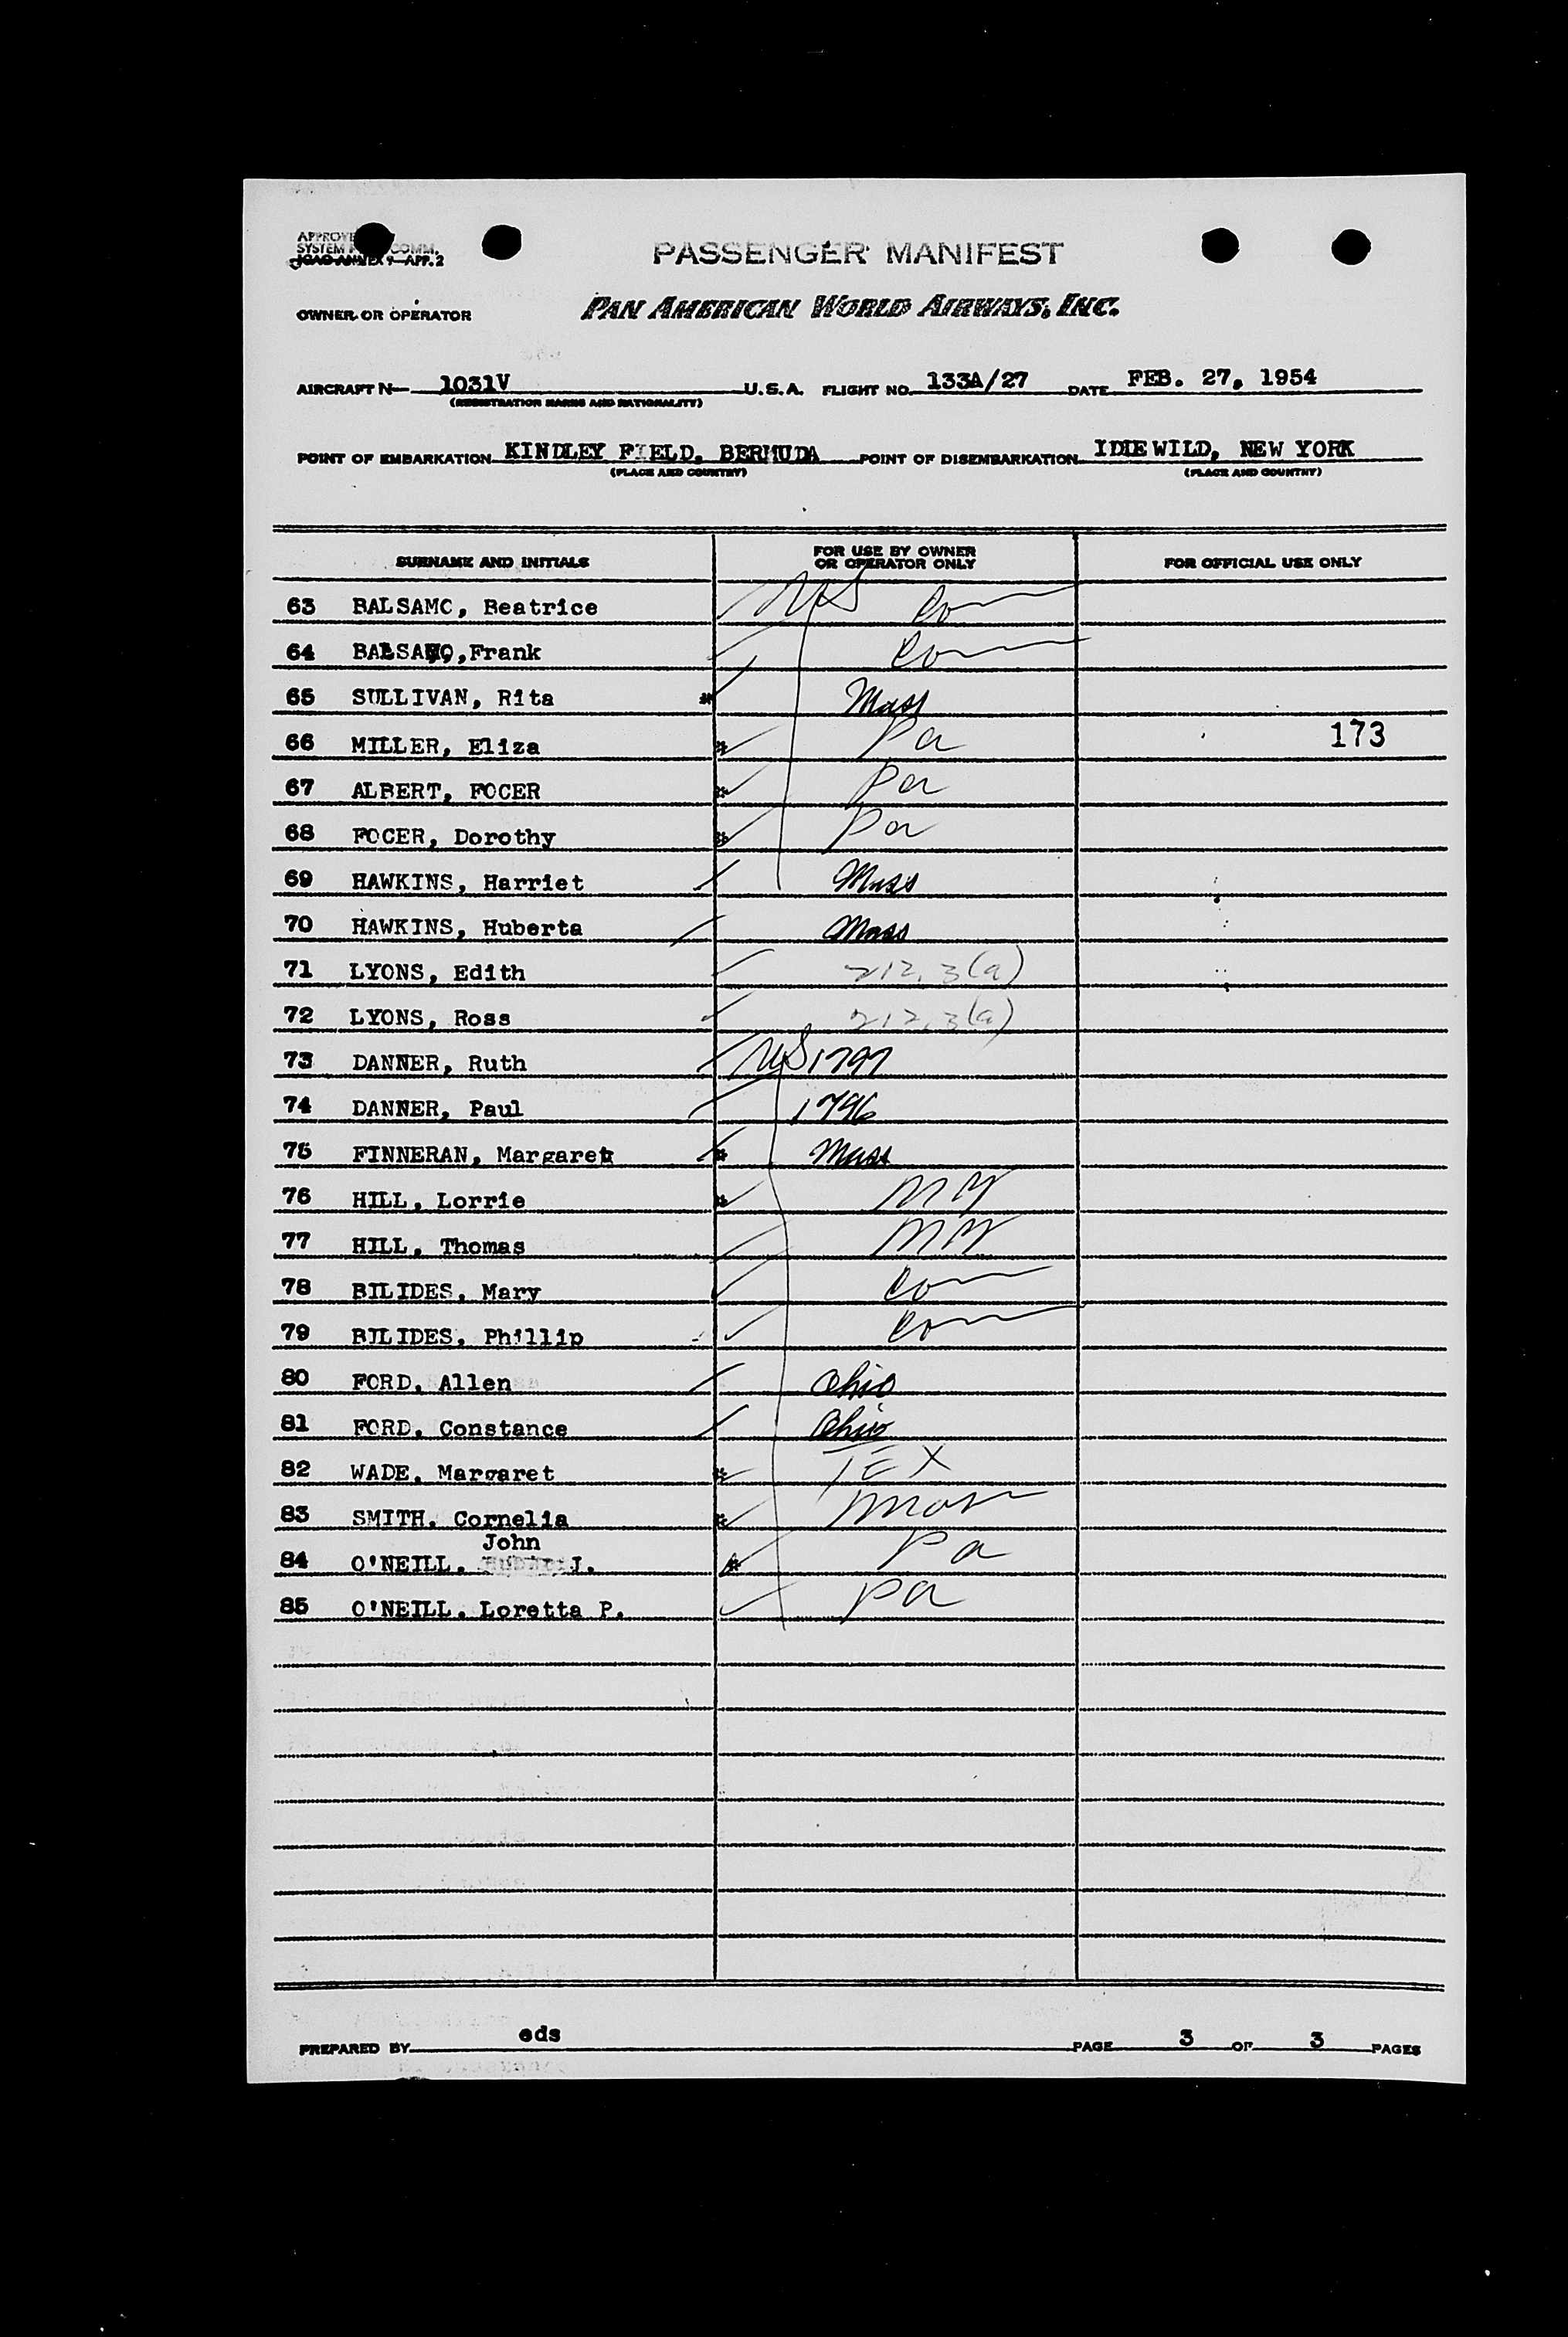 PASSENGER MANIFEST
SYSTEM COMM.
ICAO ANNEX 9—APP. 2
OWNER OR OPERATOR PAN AMERICAN WORLD AIRWAYS, INC.
AIRCRAFT N— 1031V U.S.A. FLIGHT NO. 133A/27 DATE FEB. 27, 1954
(REGISTRATION MARKS AND NATIONALITY)
POINT OF EMBARKATION KINDLEY FIELD, BERMUDA POINT OF DISEMBARKATION IDLEWILD, NEW YORK
(PLACE AND COUNTRY) (PLACE AND COUNTRY)
SURNAME AND INITIALS FOR USE BY OWNER OR OPERATOR ONLY FOR OFFICIAL USE ONLY
63 BALSAMO, Beatrice US Conn
64 BALSAMO, Frank Conn
65 SULLIVAN, Rita * Mass
66 MILLER, Eliza * Pa 173
67 ALBERT, FOCER * Pa
68 FOCER, Dorothy * Pa
69 HAWKINS, Harriet Mass
70 HAWKINS, Huberta Mass
71 LYONS, Edith 212.3(a)
72 LYONS, Ross 212.3(a)
73 DANNER, Ruth US 1797
74 DANNER, Paul 1796
75 FINNERAN, Margaret * Mass
76 HILL, Lorrie * NY
77 HILL, Thomas NY
78 BILIDES, Mary Conn
79 BILIDES, Phillip Conn
80 FORD, Allen Ohio
81 FORD, Constance Ohio
82 WADE, Margaret * TEX
83 SMITH, Cornelia * Mass
John
84 O'NEILL, J. * Pa
85 O'NEILL, Loretta P. Pa
PREPARED BY eds PAGE 3 OF 3 PAGES